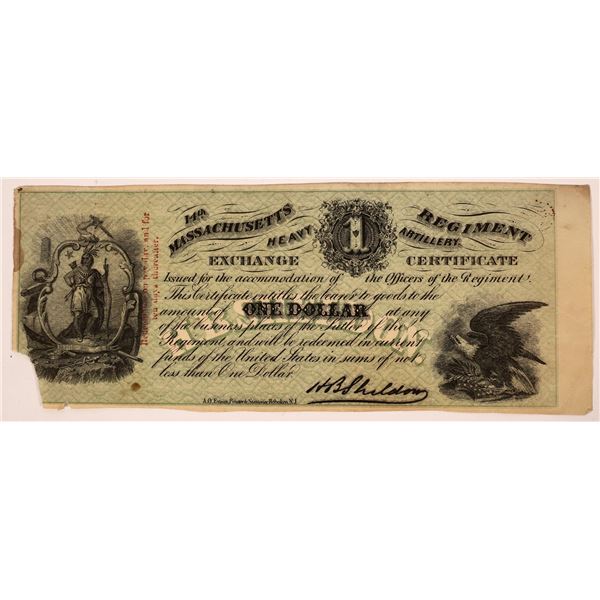 14th
MASSACHUSETTS REGIMENT
HEAVY 1 ARTILLERY.
EXCHANGE CERTIFICATE
Issued for the accommodation of the Officers of the Regiment.
This Certificate entitles the bearer to goods to the
amount of ONE DOLLAR at any
of the business places of the Sutler of the
Regiment, and will be redeemed in current
funds of the United States in sums of not
less than One Dollar.
H B Sheldon
pay day, and for
days thereafter.